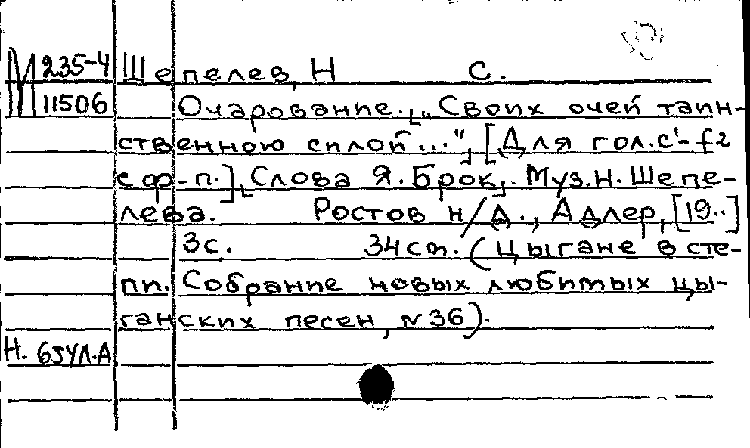 М 235-4 Шепелев, Н С.
11506 Очарование. „Своих очей таин-
ственною силой...", [Для гол. c¹-f2
с ф-п.], Слова Я. Брок, Муз. Н. Шепе-
лева. Ростов н/Д., Адлер, [19..]
3с. 34 см. (Цыгане в сте-
пи. Собрание новых любимых цы-
ганских песен, N 36).
Н.